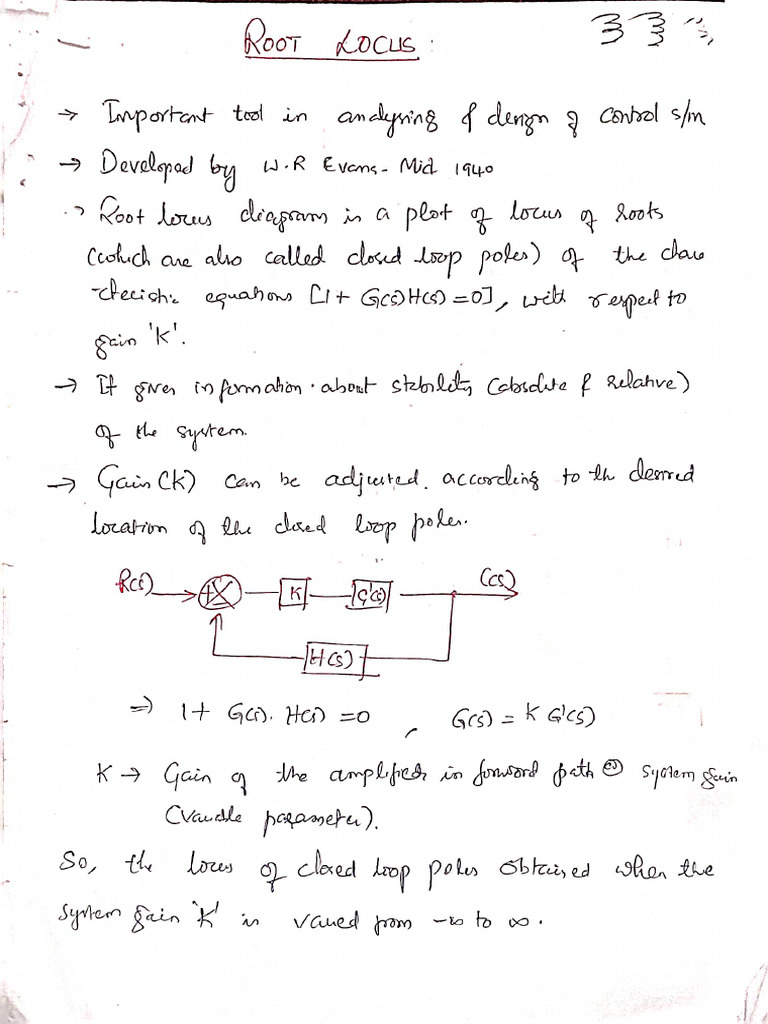 ROOT LOCUS :
→ Important tool in analysing & design of control s/m
→ Developed by W.R Evans - Mid 1940
→ Root locus diagram is a plot of locus of roots
(which are also called closed loop poles) of the chara
-cteristic equations [1 + G(s)H(s) = 0], with respect to
gain 'K'.
→ It gives information about stability (absolute & relative)
of the system.
→ Gain (K) can be adjusted according to the desired
location of the closed loop poles.
R(s) K G'(s) C(s)
H(s)
⇒ 1 + G(s). H(s) = 0 , G(s) = K G'(s)
K → Gain of the amplifier in forward path or system gain
(Variable parameter).
So, the locus of closed loop poles obtained when the
system gain 'K' is varied from -∞ to ∞.